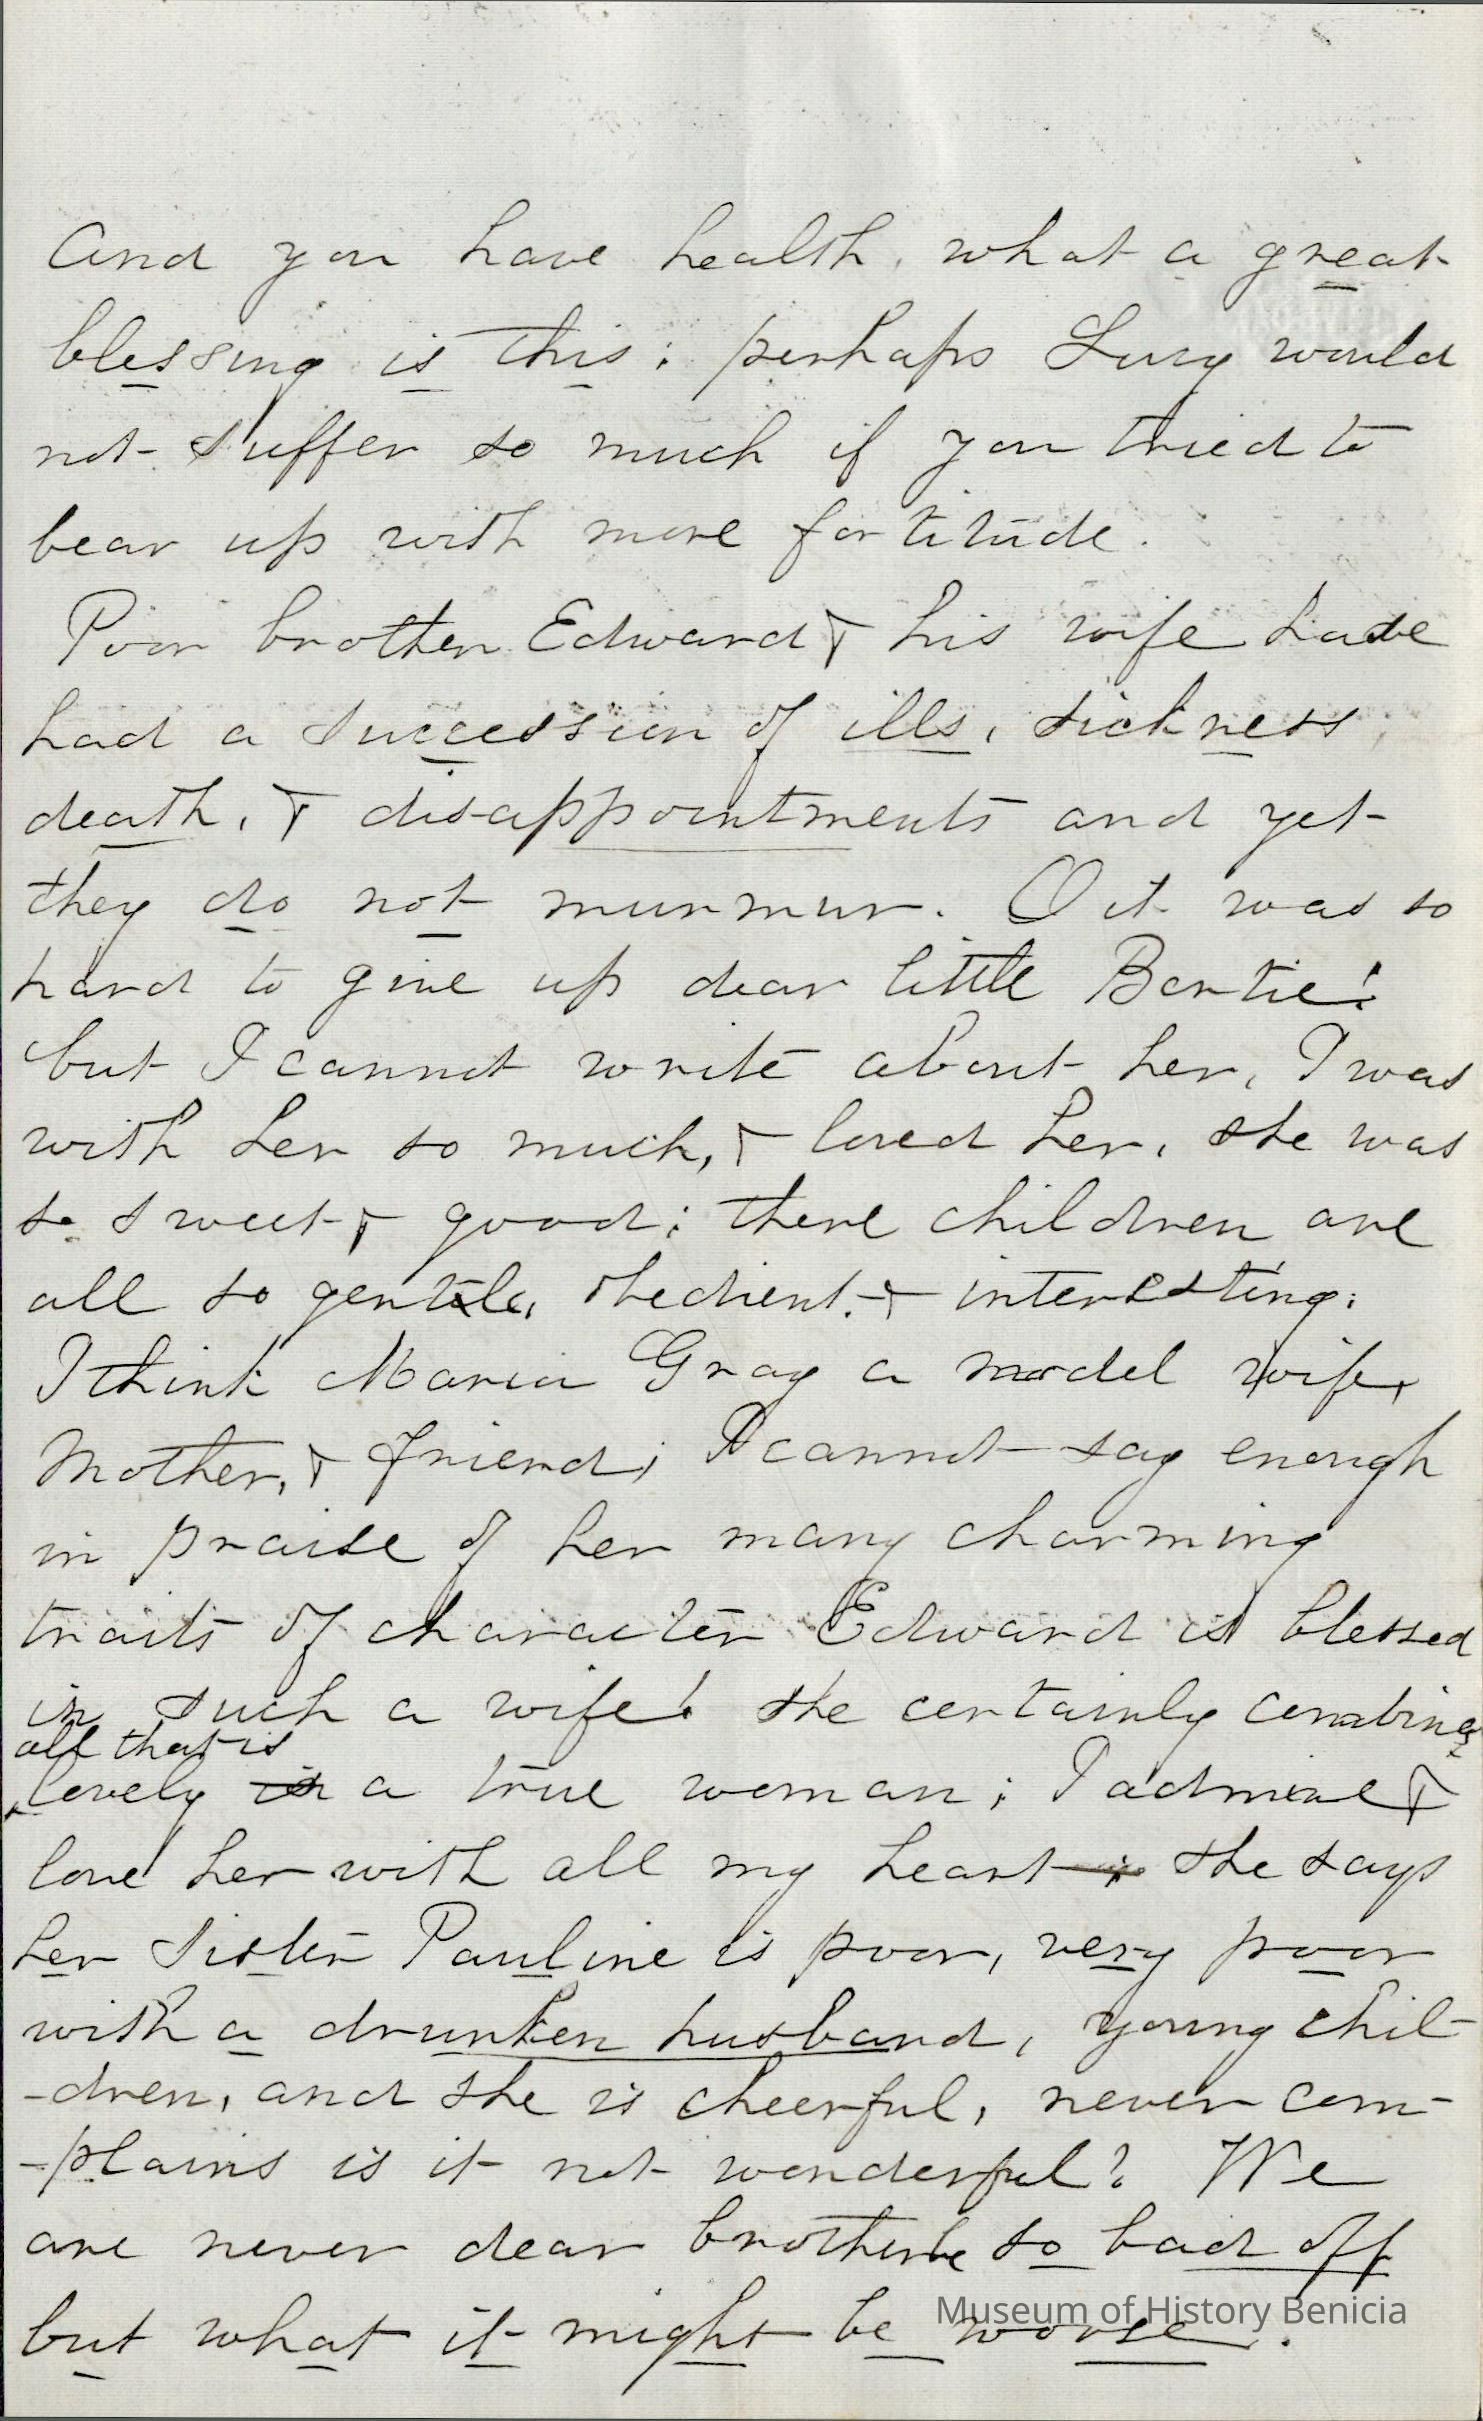 And you have health, what a great
blessing is this; perhaps Lucy would
not suffer so much if you tried to
bear up with more fortitude.
Poor brother Edward & his wife have
had a succession of ills, sickness,
death, & disappointments and yet
they do not murmur. O it was so
hard to give up dear little Bertie!
but I cannot write about her, I was
with her so much, & loved her, she was
so sweet & good; there children are
all so gentle, obedient & interesting;
I think Maria Gray a model wife,
Mother, & friend; I cannot say enough
in praise of her many charming
traits of character Edward is blessed
in such a wife! she certainly combines
all that is
lovely in a true woman; I admire &
love her with all my heart; she says
her sister Pauline is poor, very poor
with a drunken husband, young chil-
-dren, and she is cheerful, never com-
-plains is it not wonderful? We
are never dear brother so bad off
but what it might be worse.
Museum of History Benicia